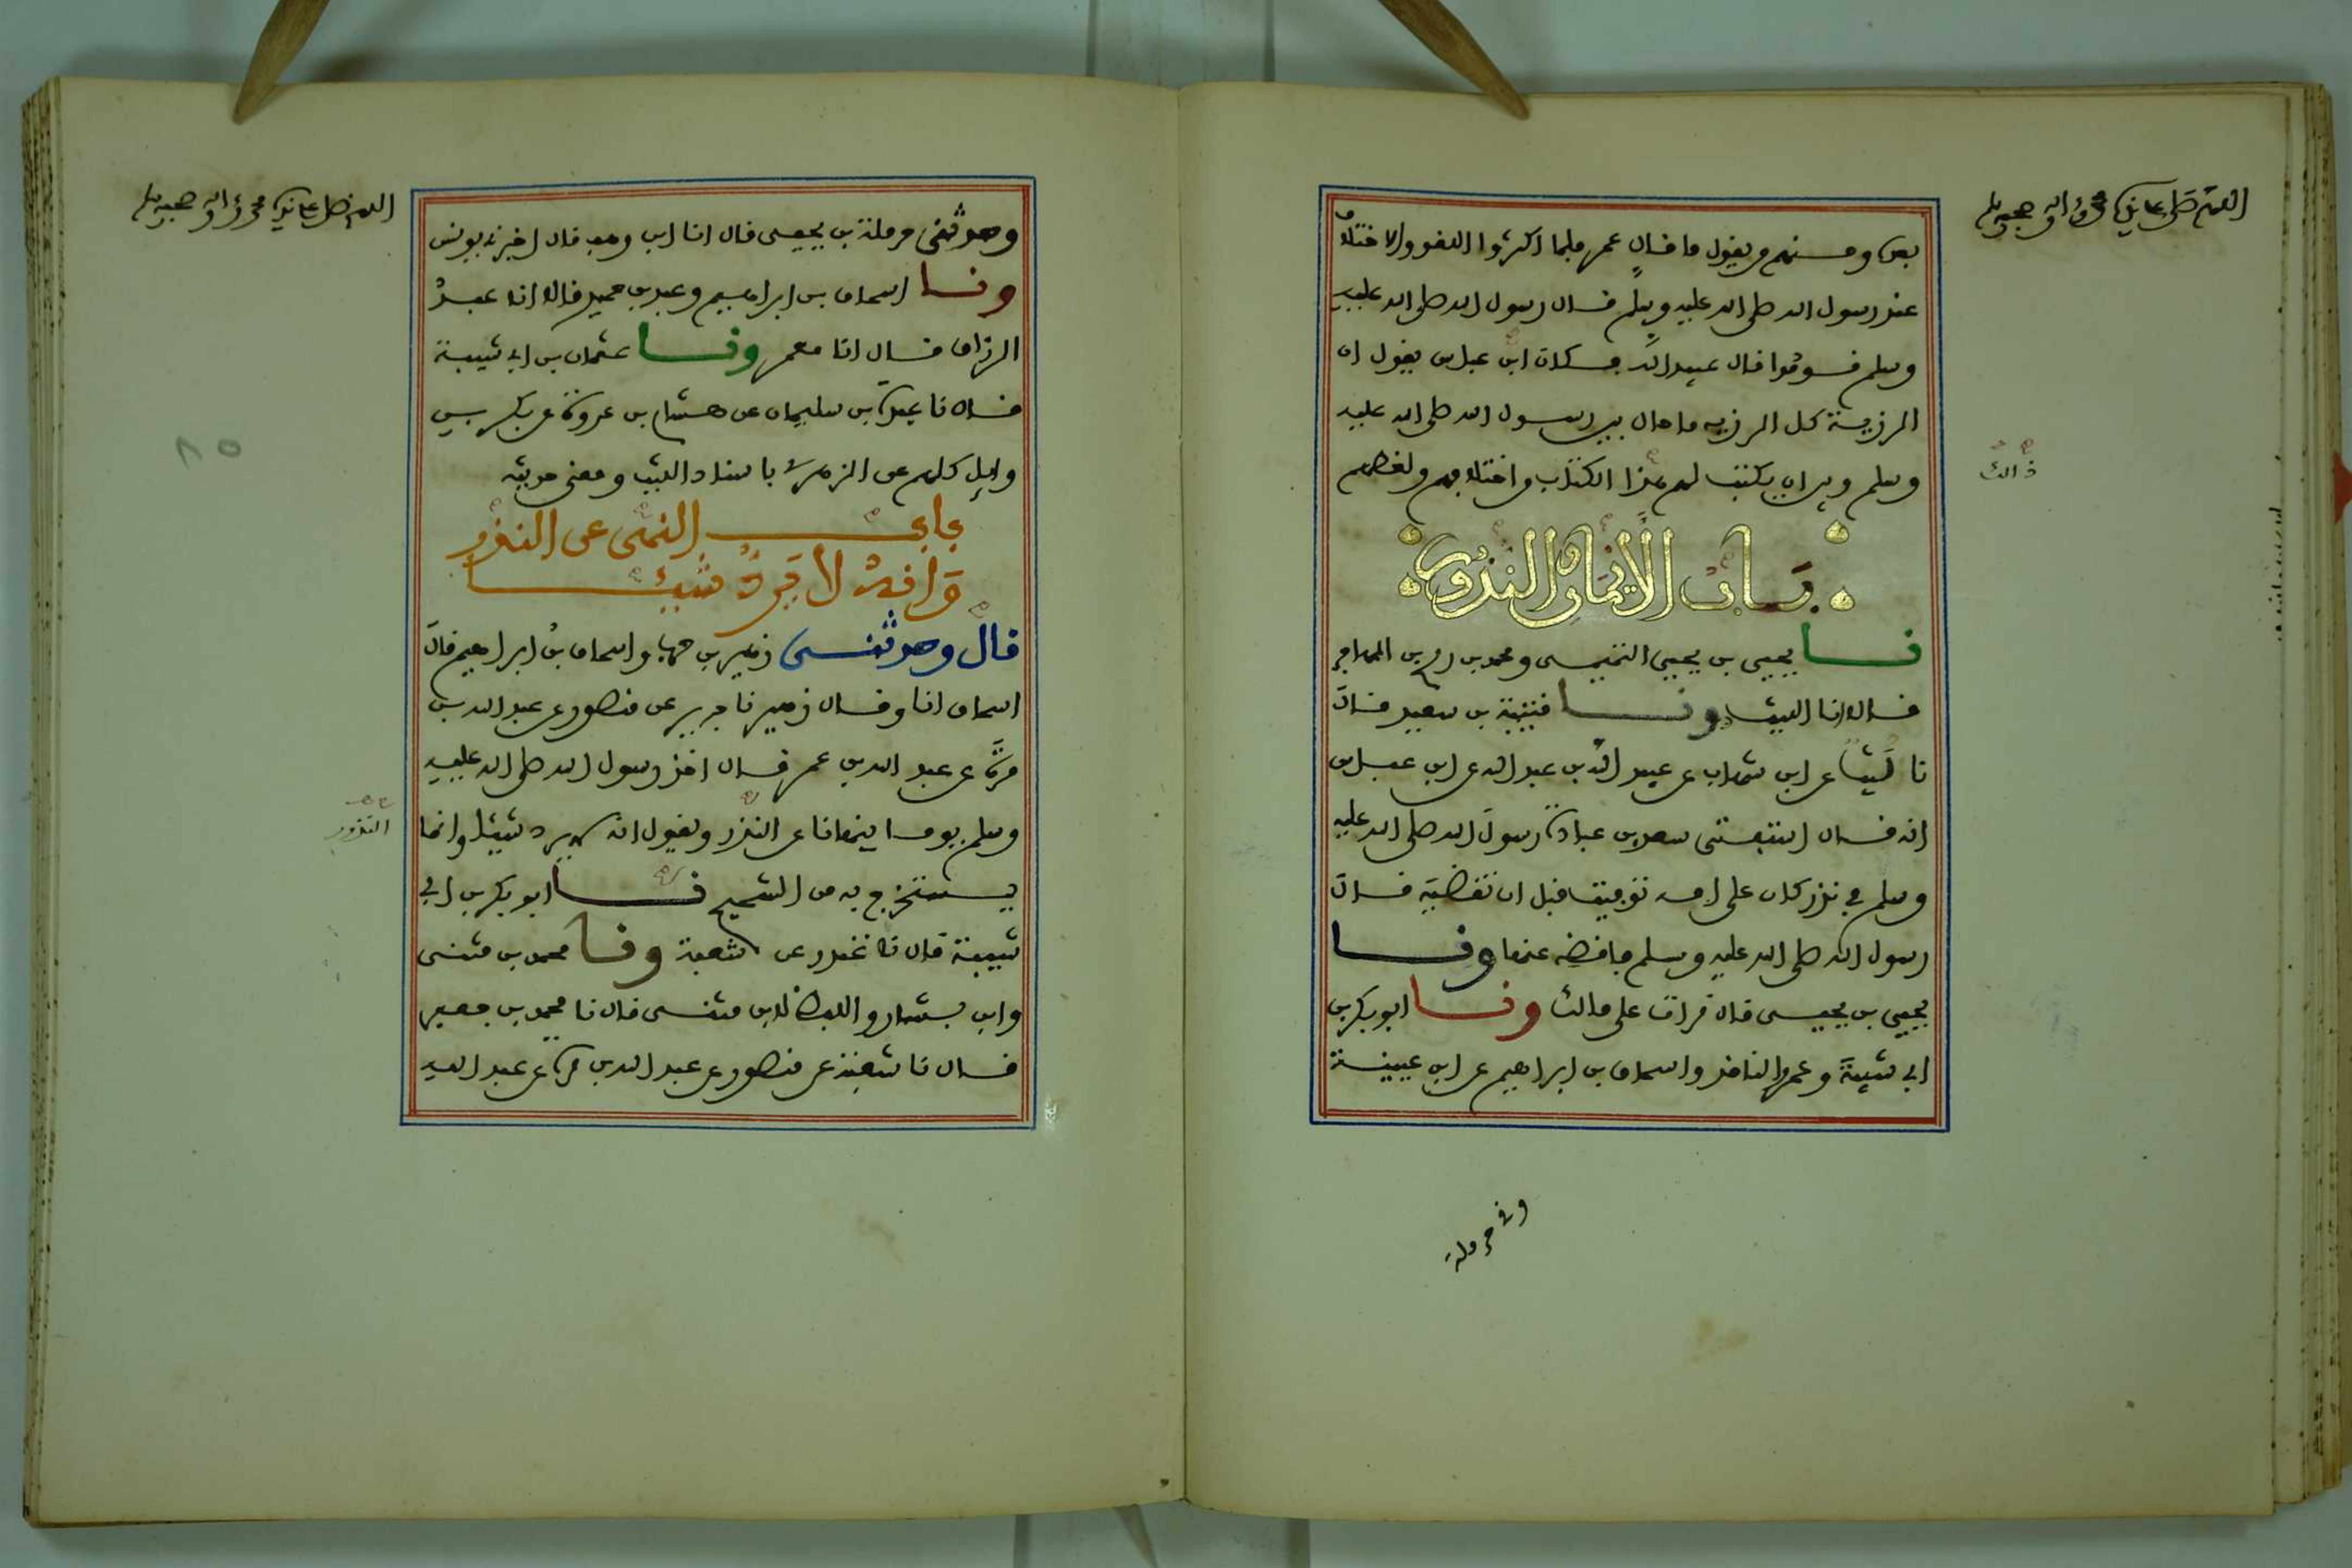 اللهم صل على سيدنا محمد وءاله وصحبه وسلم
بعده ومنهم من يقول ما قال عمر فلما اكثروا اللغو والاختلاف
عند رسول الله صلى الله عليه وسلم قال رسول الله صلى الله عليه
وسلم قوموا قال عبيد الله فكان ابن عباس يقول ان
الرزية كل الرزية ما حال بين رسول الله صلى الله عليه
وسلم وبين ان يكتب لهم هذا الكتاب من اختلافهم ولغطهم
ذالك
باب الأيمان والنذور
نا يحيى بن يحيى التميمي ومحمد بن رمح بن المهاجر
قالا انا الليث ونا قتيبة بن سعيد قال
نا ليث عن ابن شهاب عن عبيد الله بن عبد الله عن ابن عباس
انه قال استفتى سعد بن عبادة رسول الله صلى الله عليه
وسلم في نذر كان على امه توفيت قبل ان تقضيه قال
رسول الله صلى الله عليه وسلم فاقضه عنها ونا
يحيى بن يحيى قال قرات على مالك ونا ابو بكر بن
ابي شيبة وعمرو الناقد واسحاق بن ابراهيم عن ابن عيينة
وثني حرملة
اللهم صل على سيدنا محمد وءاله وصحبه وسلم
وحدثني حرملة بن يحيى قال انا ابن وهب قال اخبرني يونس
ونا اسحاق بن ابراهيم وعبد بن حميد قالا انا عبد
الرزاق قال انا معمر ونا عثمان بن ابي شيبة
قال نا عبدة بن سليمان عن هشام بن عروة عن بكر بن
وايل كلهم عن الزهري باسناد الليث ومعنى حديثه
باب النهي عن النذر
وانه لا يرد شيئا
قال وحدثني زهير بن حرب واسحاق بن ابراهيم قال
اسحاق انا وقال زهير نا جرير عن منصور عن عبد الله بن
مرة عن عبد الله بن عمر قال اخذ رسول الله صلى الله عليه
وسلم يوما ينهانا عن النذر ويقول انه لا يرد شيئا وانما
النذور
يستخرج به من الشحيح نا ابو بكر بن ابي
شيبة قال نا غندر عن شعبة ونا محمد بن مثنى
وابن بشار واللفظ لابن مثنى قال نا محمد بن جعفر
قال نا شعبة عن منصور عن عبد الله بن مرة عن عبد الله